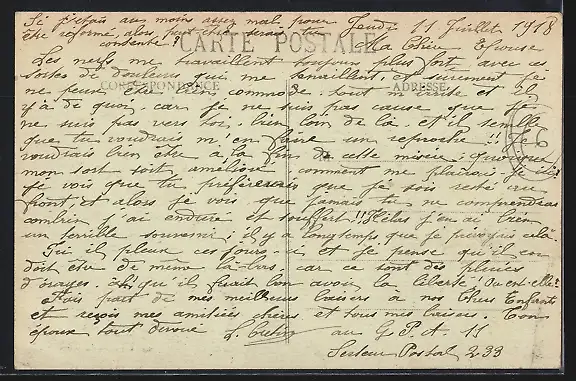 Si j'étais au moins assez mal pour
être réformé, alors peut-être serais tu
contente !
Jeudi 11 Juillet 1918
CARTE POSTALE
Ma Chère Epouse
Les nerfs me travaillent toujours plus fort avec ces
sortes de douleurs qui me et surement je
CORRESPONDANCE
ADRESSE
ne peux être bien commode. tout m' et il
y a de quoi, car je ne suis pas cause que je
ne suis pas vers toi, bien loin de là et il semble
que tu voudrais m'en faire un reproche !! Je
voudrais bien être à la fin de cette misère, quoique
mon sort soit amélioré comment me plaindre
je vois que tu préférerais que je sois resté au
front et alors je vois que jamais tu ne comprendras
combien j'ai enduré et souffert !! Hélas j'en ai bien
un terrible souvenir; il y a longtemps que je prévois cela.
Ici il pleure ces jours-ci et je pense qu'il en
doit être de même là-bas, car ce sont des pluies
d'orages. Ah qu'il ferait bon avoir la liberté ! Où est-elle?
Fais part de mes meilleurs baisers à nos Chers Enfants
et reçois mes amitiés chères et tous mes baisers. Ton
époux tout dévoué
au G.P.A. 11
Secteur Postal 233